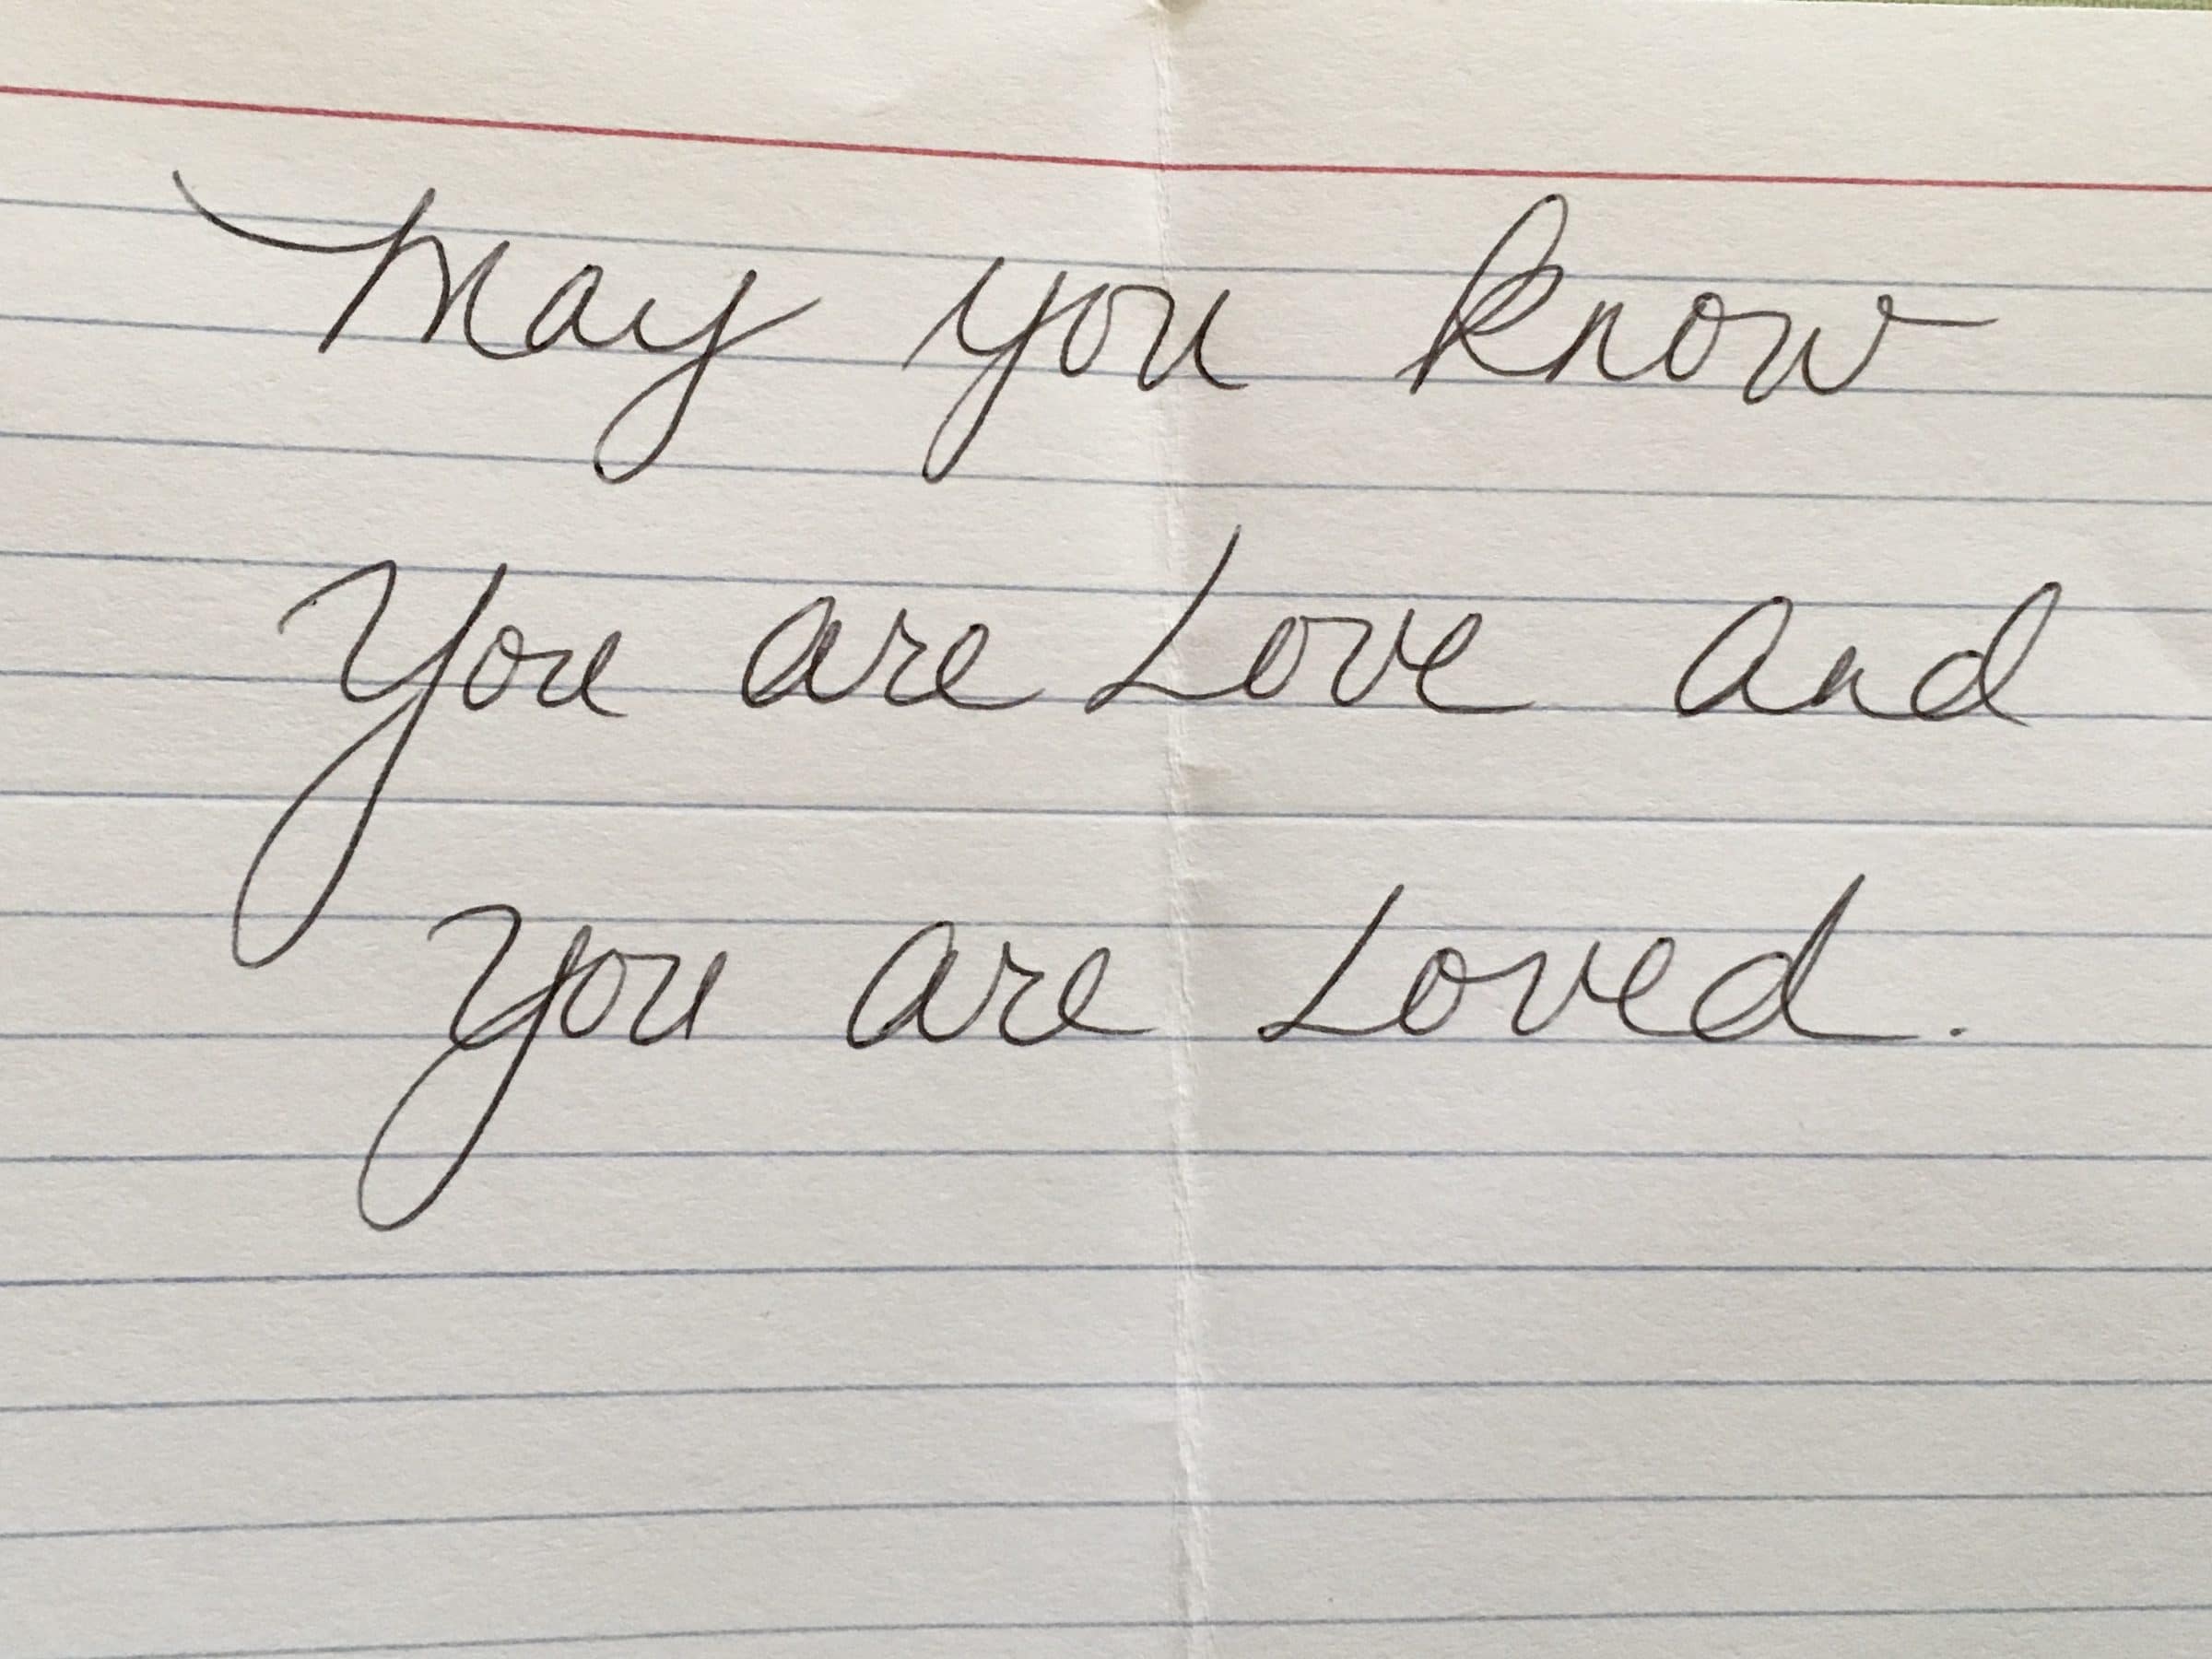 May you know
You are Love and
you are Loved.